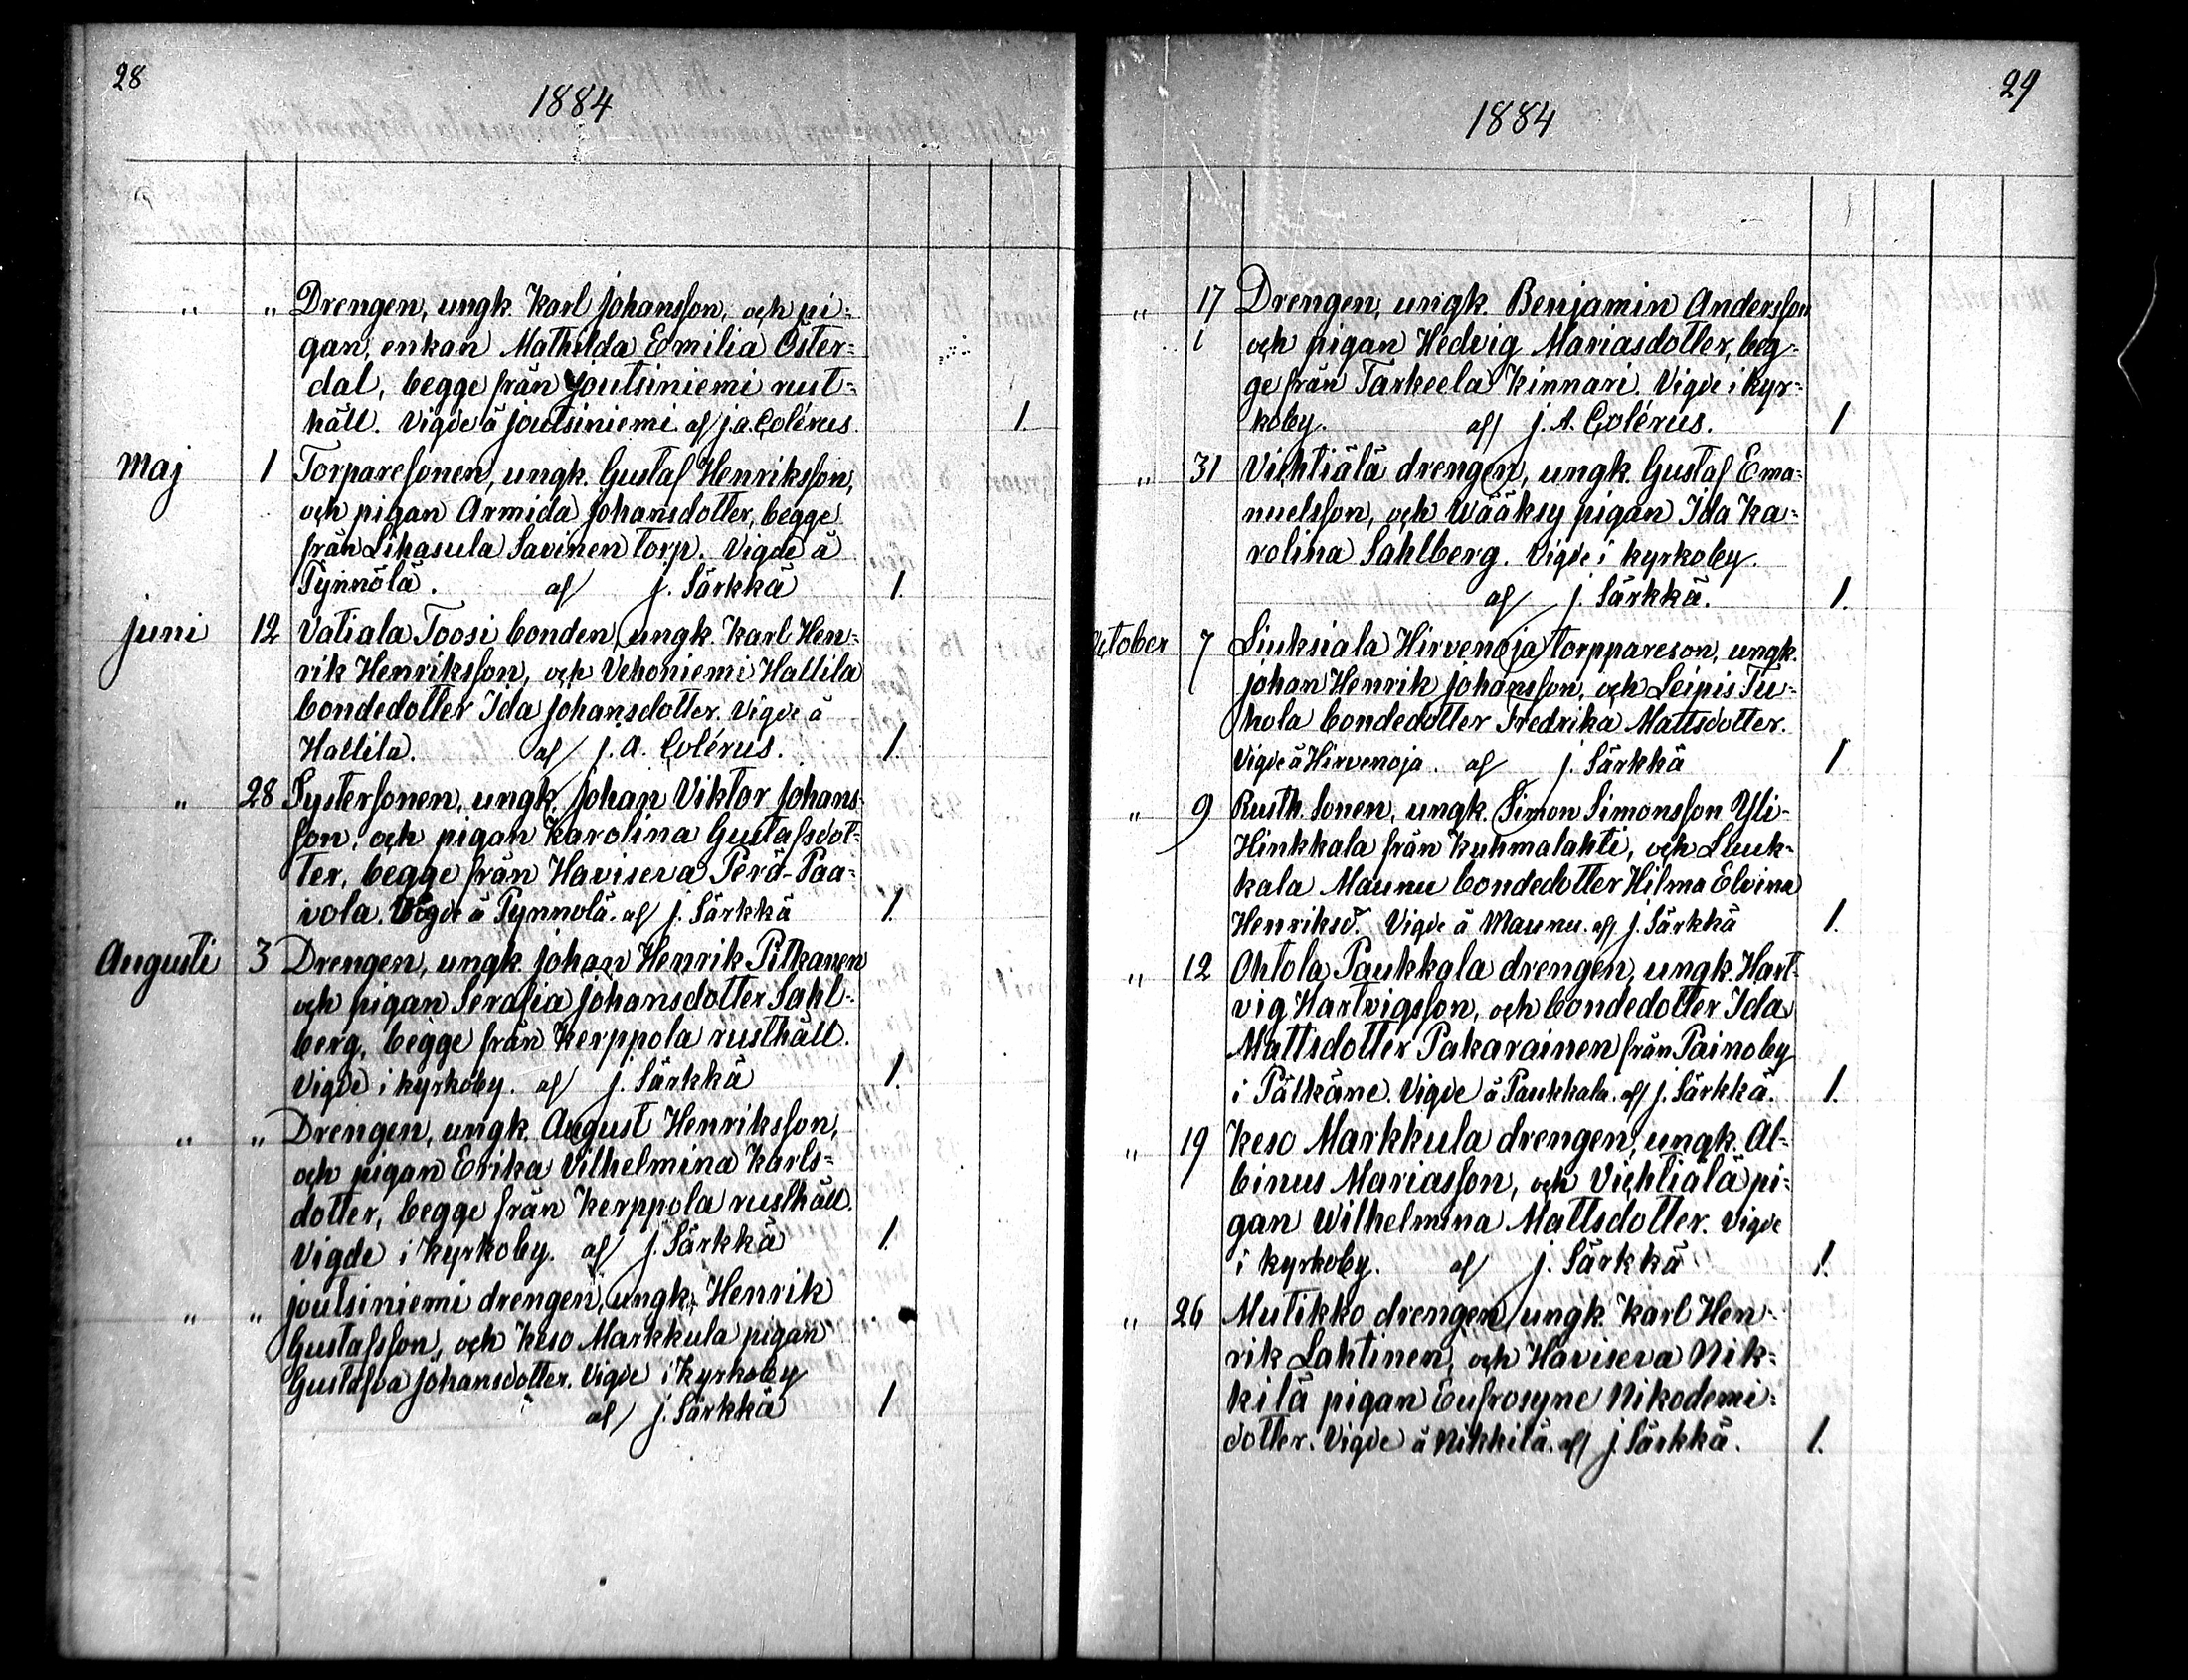 28
1884
" " Drengen, ungk. Karl Johansson, och pi-
gan, enkan Mathilda Emilia Öster-
dal, begge från Joutsiniemi rust-
håll. Vigde å Joutsiniemi af J. A. Colérus. 1.
Maj 1 Torparesonen, ungk. Gustaf Henriksson,
och pigan Armida Johansdotter, begge
från Lihasula Savinen torp. Vigde å
Tynnölä. af J. Särkkä 1.
Juni 12 Vatiala Toosi bonden, ungk. Karl Hen-
rik Henriksson, och Vehoniemi Hallila
bondedotter Ida Johansdotter. Vigde å
Hallila. af J. A. Colérus. 1.
" 28 Systersonen, ungk. Johan Viktor Johans-
son, och pigan Karolina Gustafsdot-
ter, begge från Haviseva Perä-Paa-
vola. Vigde å Tynnölä. af J. Särkkä 1.
Augusti 3 Drengen, ungk. Johan Henrik Pitkänen
och pigan Serafia Johansdotter Sahl-
berg, begge från Kerppola rusthåll.
Vigde i kyrkoby. af J. Särkkä 1.
" " Drengen, ungk. August Henriksson,
och pigan Erika Vilhelmina Karls-
dotter, begge från Kerppola rusthåll.
Vigde i kyrkoby. af J. Särkkä 1.
" " Joutsiniemi drengen, ungk. Henrik
Gustafsson, och Keso Markkula pigan
Gustafva Johansdotter. Vigde i kyrkoby
af J. Särkkä 1
29
1884
" 17 Drengen, ungk. Benjamin Andersson
och pigan Hedvig Mariasdotter, beg-
ge från Tarkeela Kinnari. Vigde i kyr-
koby. af J. A. Colérus. 1
" 31 Vihtiälä drengen, ungk. Gustaf Ema-
nuelsson, och Wääksy pigan Ida Ka-
rolina Sahlberg. Vigde i kyrkoby.
af J. Särkkä. 1.
Oktober 7 Liuksiala Hirvenoja torppareson, ungk.
Johan Henrik Johansson, och Leipis Tu-
hola bondedotter Fredrika Mattsdotter.
Vigde å Hirvenoja. af J. Särkkä 1
" 9 Rusth. sonen, ungk. Simon Simonsson Yli-
Hinkkala från Kuhmalahti, och Liuk-
kala Maunu bondedotter Hilma Elvina
Henriksd. Vigde å Maunu. af J. Särkkä 1.
" 12 Ohtola Paukkala drengen, ungk. Hart-
vig Hartvigsson, och bondedotter Ida
Mattsdotter Pakarainen från Painoby
i Pälkäne. Vigde å Paukkala. af J. Särkkä. 1.
" 19 Keso Markkula drengen, ungk. Al-
binus Mariasson, och Vichtiälä pi-
gan Wilhelmina Mattsdotter. Vigde
i kyrkoby. af J. Särkkä 1.
" 26 Mutikko drengen, ungk. Karl Hen-
rik Lahtinen, och Haviseva Nik-
kilä pigan Eufrosyne Nikodemi-
dotter. Vigde å Nikkilä. af J. Särkkä. 1.